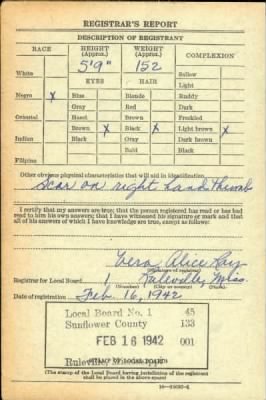 REGISTRAR'S REPORT
DESCRIPTION OF REGISTRANT
RACE HEIGHT (Approx.) WEIGHT (Approx.) COMPLEXION
5'9" 152
White Sallow
EYES HAIR Light
Negro X Blue Blonde Ruddy
Gray Red Dark
Oriental Hazel Brown Freckled
Brown X Black X Light brown X
Indian Black Gray Dark brown
Bald Black
Filipino
Other obvious physical characteristics that will aid in identification
Scar on right hand thumb
I certify that my answers are true; that the person registered has read or has had
read to him his own answers; that I have witnessed his signature or mark and that
all of his answers of which I have knowledge are true, except as follows:
Vera Alice Ray
(Signature of registrar)
Registrar for Local Board 1 Ruleville, Miss.
(Number) (City or county) (State)
Date of registration Feb. 16, 1942
Local Board No. 1 45
Sunflower County 133
FEB 16 1942 001
Ruleville,
STAMP OF LOCAL BOARD
(The stamp of the Local Board having jurisdiction of the registrant
shall be placed in the above space)